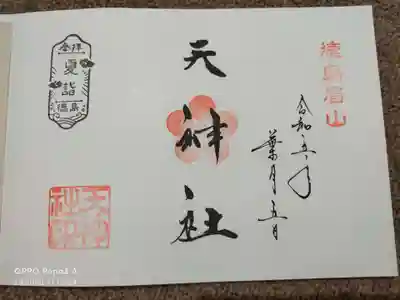 徳島眉山
令和五年
葉月五日
天神社
参拝
夏詣
徳島
天神
社印
OPPO Reno3 A